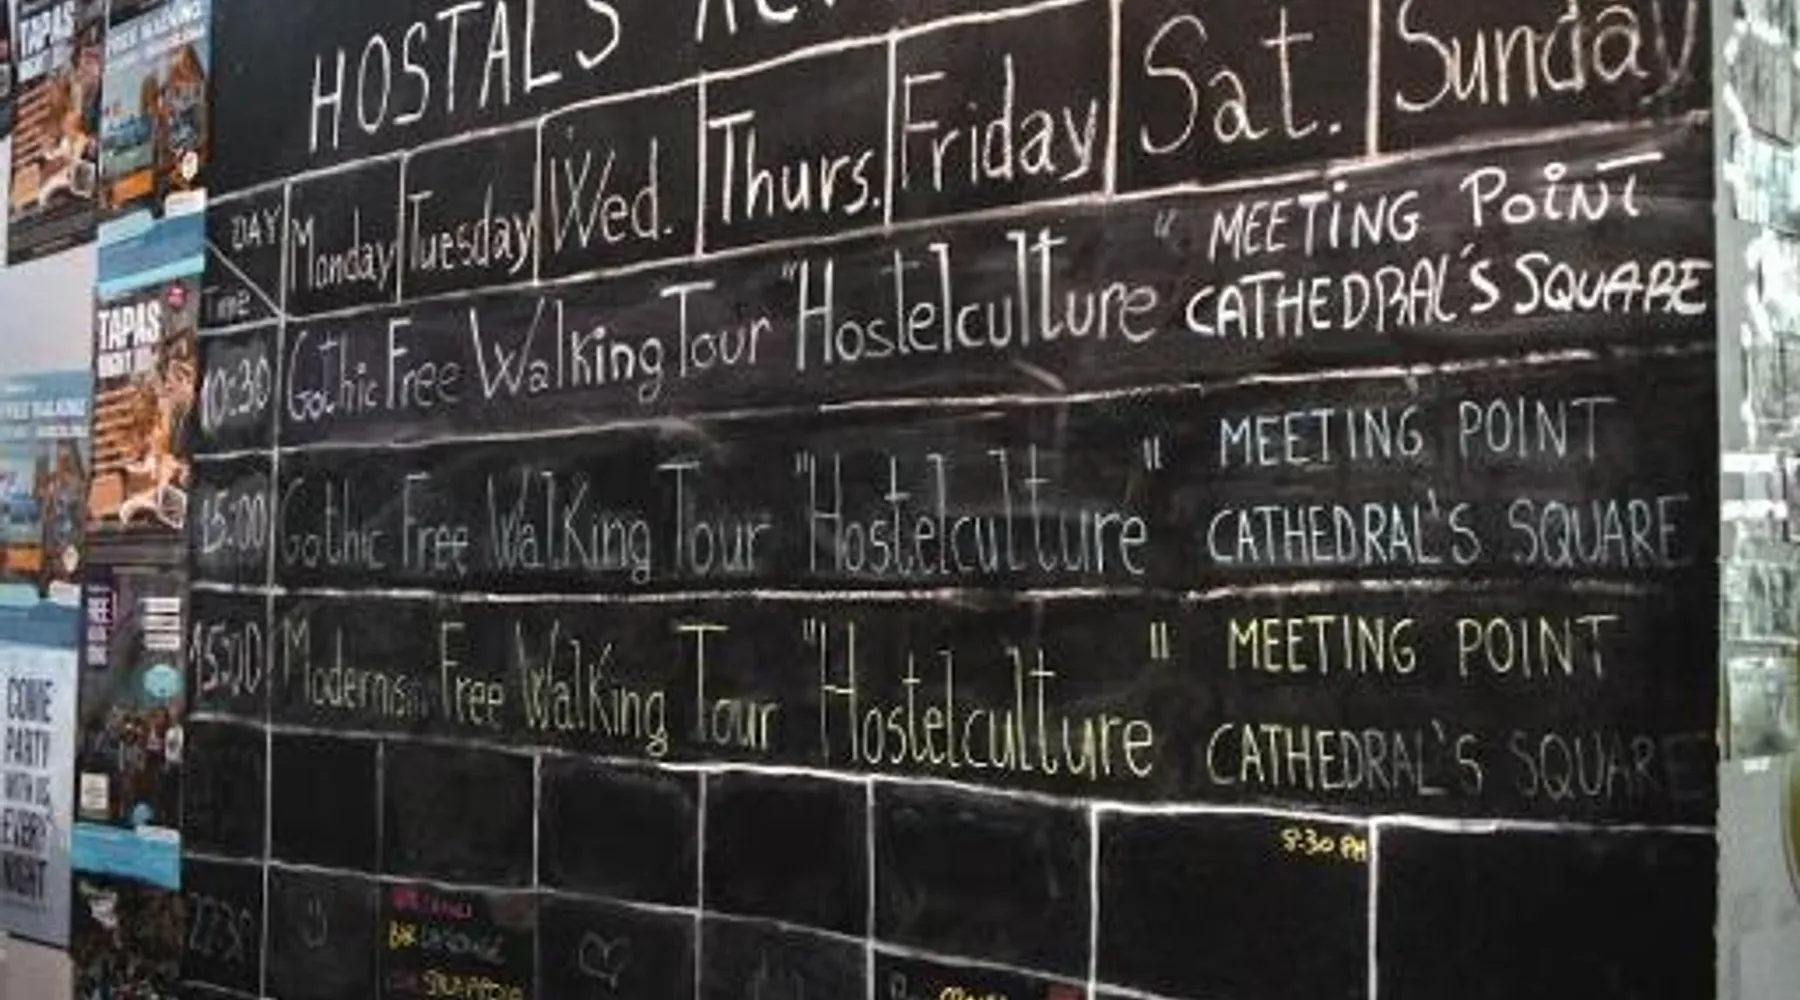 HOSTALS
DAY Monday Tuesday Wed. Thurs. Friday Sat. Sunday
Time
10:30 Gothic Free Walking Tour "Hostelculture" MEETING POINT
CATHEDRAL'S SQUARE
15:00 Gothic Free Walking Tour "Hostelculture" MEETING POINT
CATHEDRAL'S SQUARE
15:00 Modernism Free Walking Tour "Hostelculture" MEETING POINT
CATHEDRAL'S SQUARE
8:30 PM
22:30
BAR
TAPAS
FREE WALKING
TAPAS
FREE WALKING
COME
PARTY
WITH US
EVERY
NIGHT